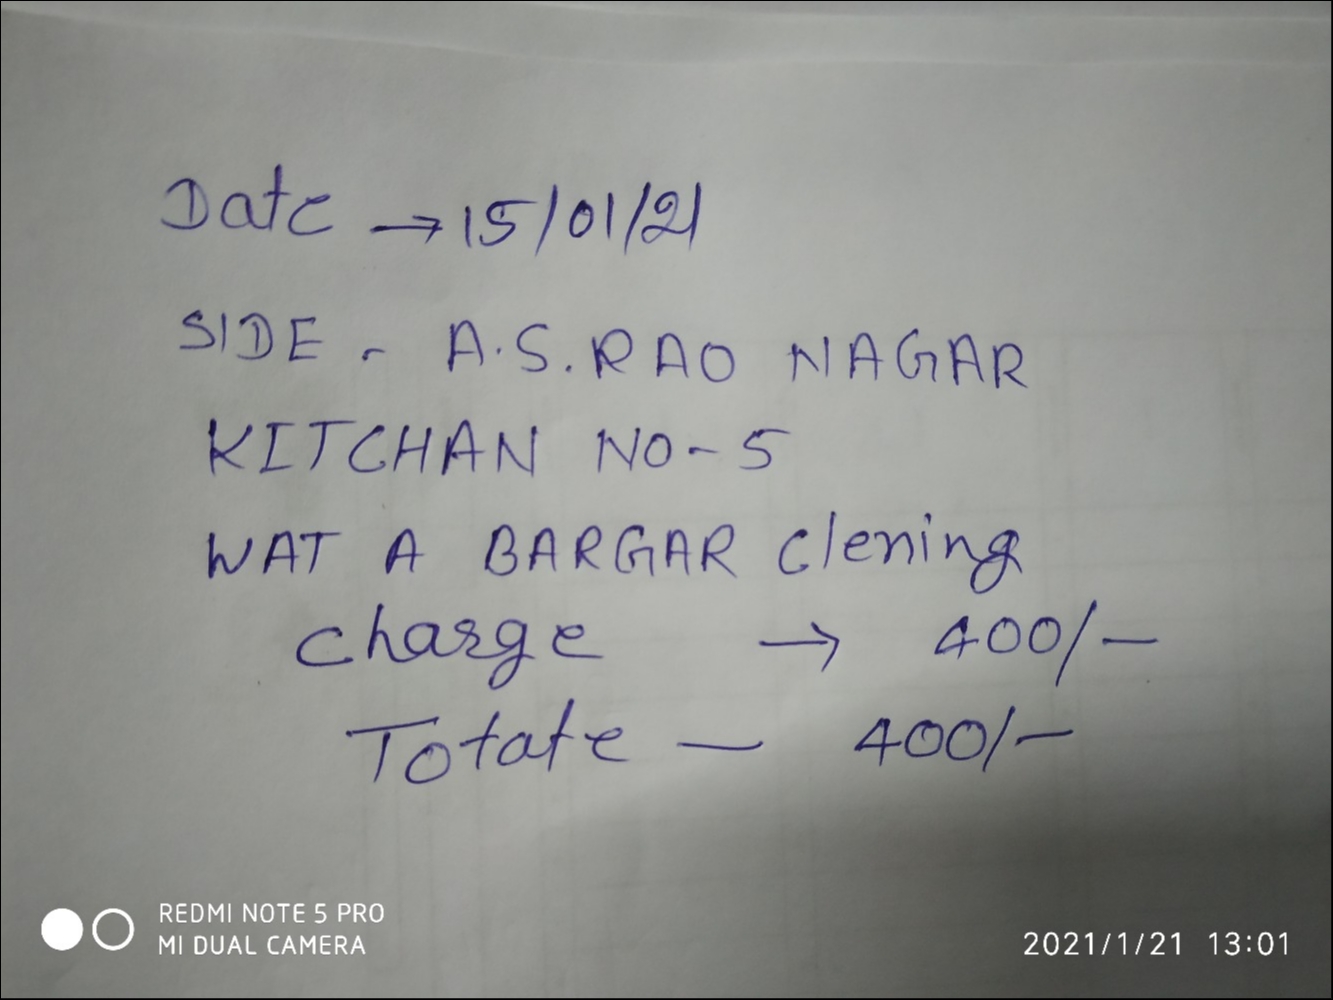 Date → 15/01/21
SIDE - A.S.RAO NAGAR
KITCHAN NO-5
WAT A BARGAR Clening
Charge → 400/-
Totate - 400/-
REDMI NOTE 5 PRO
MI DUAL CAMERA
2021/1/21 13:01